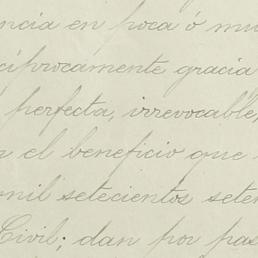 ncia en poca ó mu
cíprocamente gracia
perfecta, irrevocable,
el beneficio que
mil setecientos sete
Civil; dan por pas